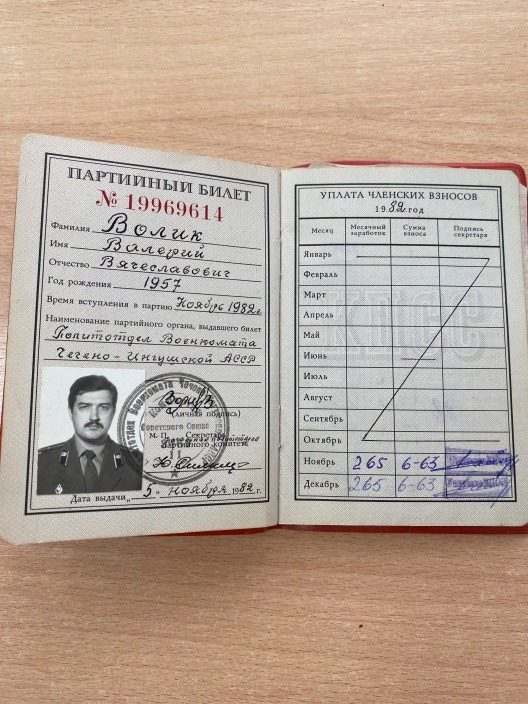 ПАРТИЙНЫЙ БИЛЕТ
№ 19969614
Фамилия Волик
Имя Валерий
Отчество Вячеславович
Год рождения 1957
Время вступления в партию Ноябрь 1982 г.
Наименование партийного органа, выдавшего билет
Политотдел Военкомата
Чечено-Ингушской АССР
(личная подпись)
М. П. Секретарь
партийного комитета
Дата выдачи „5“ ноября 1982 г.
УПЛАТА ЧЛЕНСКИХ ВЗНОСОВ
1982 год
Месяц Месячный заработок Сумма взноса Подпись секретаря
КПСС
Январь
Февраль
Март
Апрель
Май
Июнь
Июль
Август
Сентябрь
Октябрь
Ноябрь 265 6-63
Декабрь 265 6-63